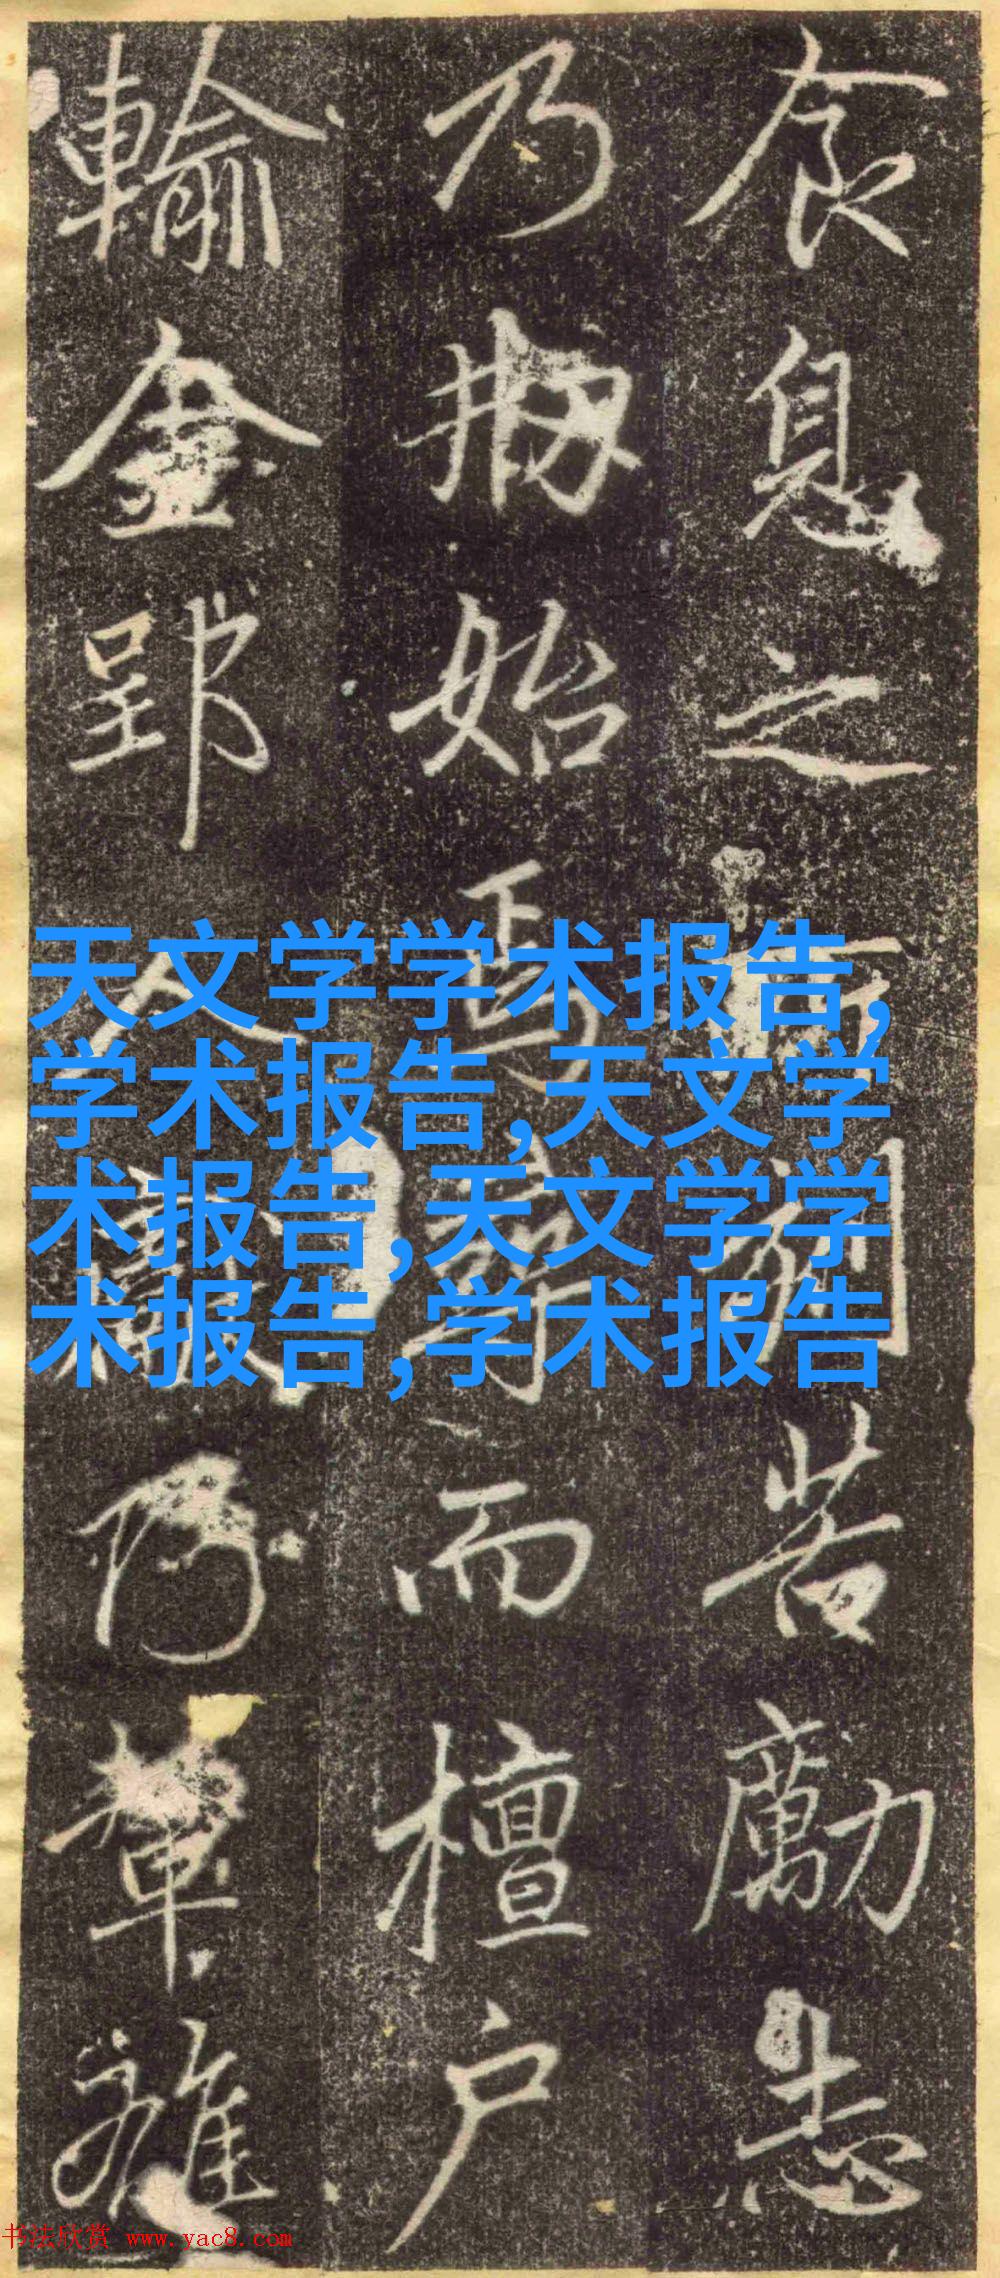 食息之苦勵志
乃始焉而檀户
輸金郢人乃輦雜
天文学学术报告,
学术报告,天文学
术报告,天文学学
术报告,学术报告
书法欣赏 www.yac8.com